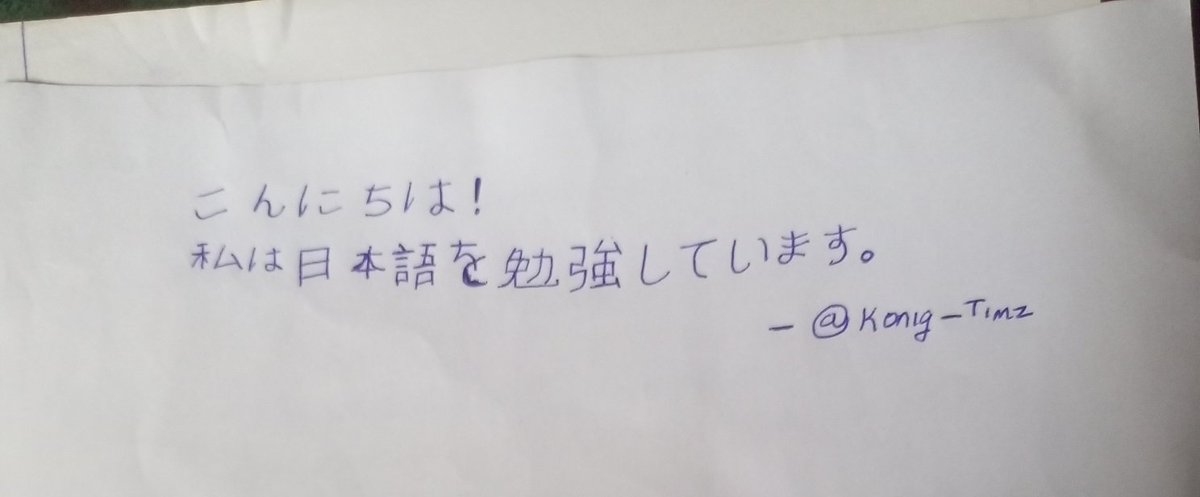 こんにちは!
私は日本語を勉強しています。
- @Konig-Timz